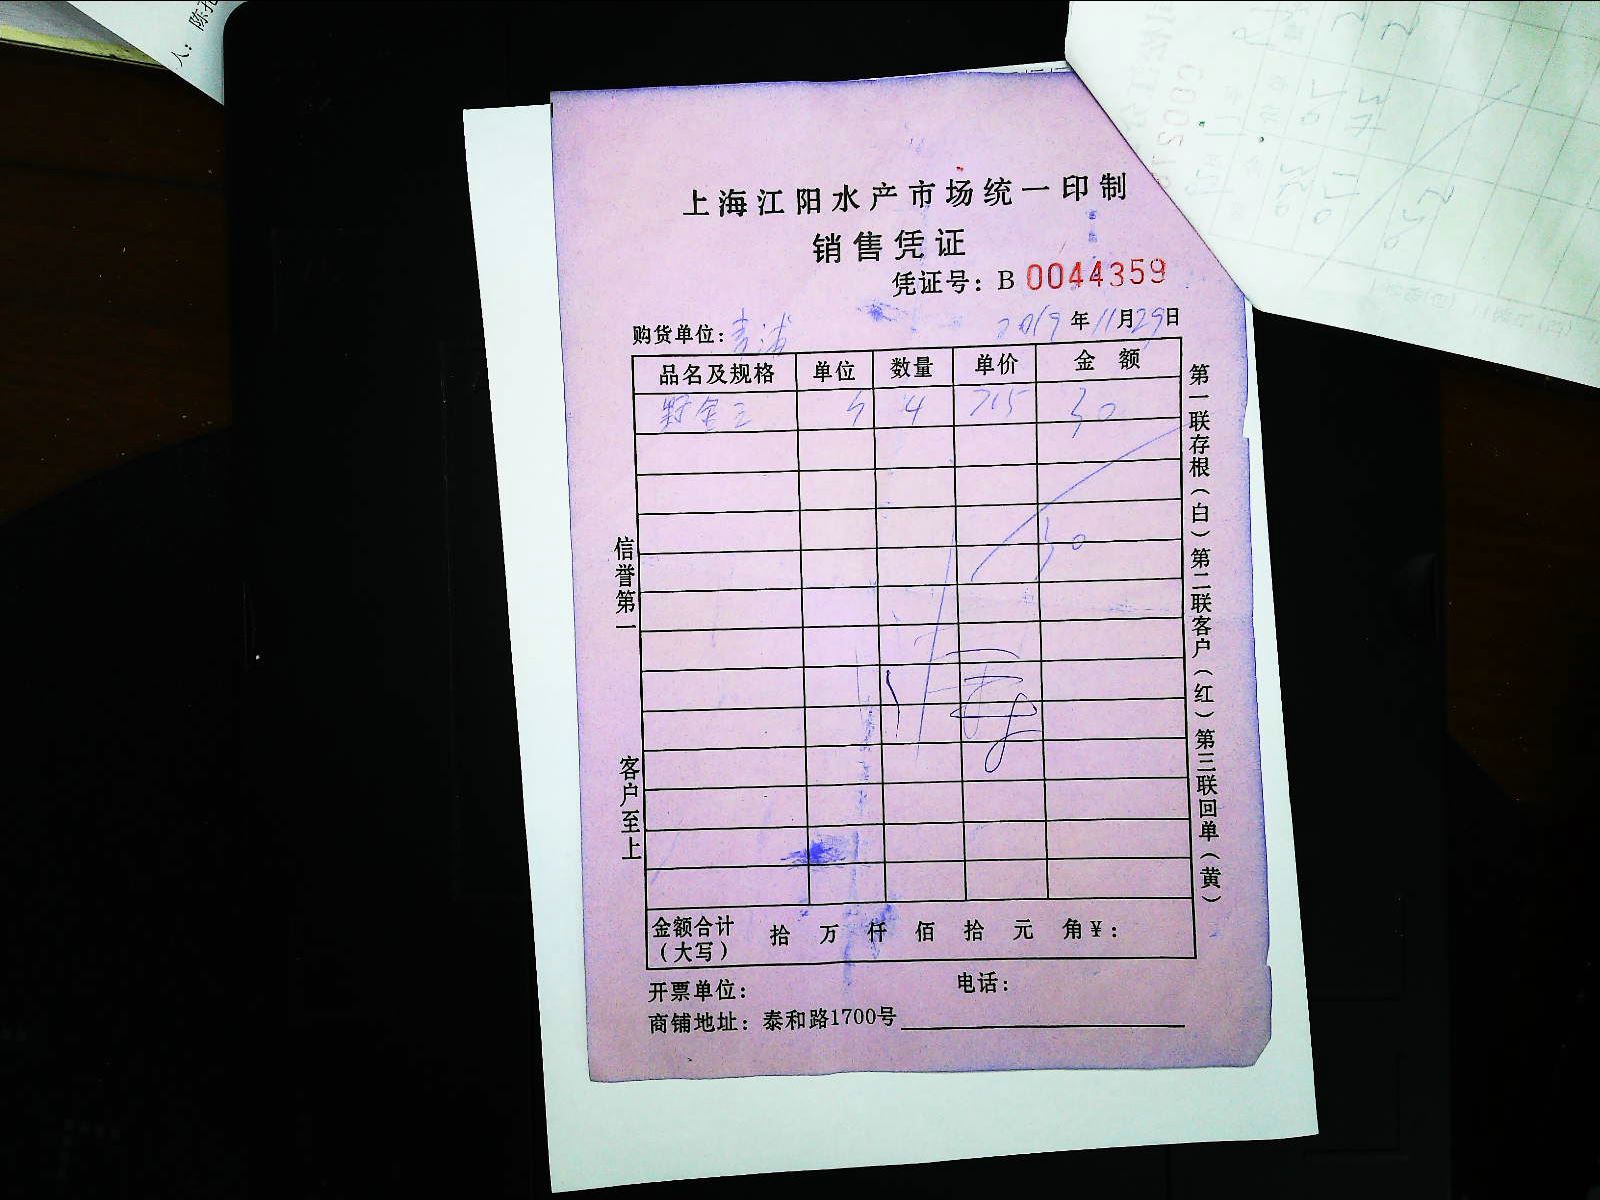 人：陈
上海江阳水产市场统一印制
销售凭证
凭证号：B 0044359
购货单位：青浦 2019年11月29日
品名及规格 单位 数量 单价 金额
4 30
30
信誉第一
客户至上
第一联存根（白）第二联客户（红）第三联回单（黄）
金额合计（大写） 拾 万 仟 佰 拾 元 角¥：
开票单位： 电话：
商铺地址：泰和路1700号